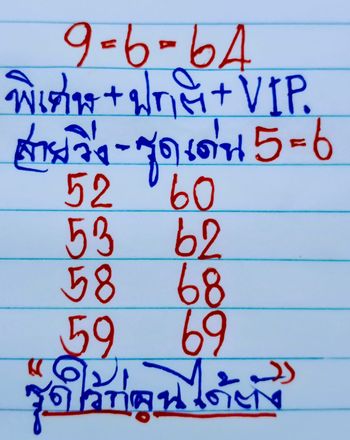 9-6-64
พิเศษ+ปกติ+VIP.
สายวิ่ง-รูดเด่น 5=6
52 60
53 62
58 68
59 69
"รูดไว้ก่อนได้ตัง"